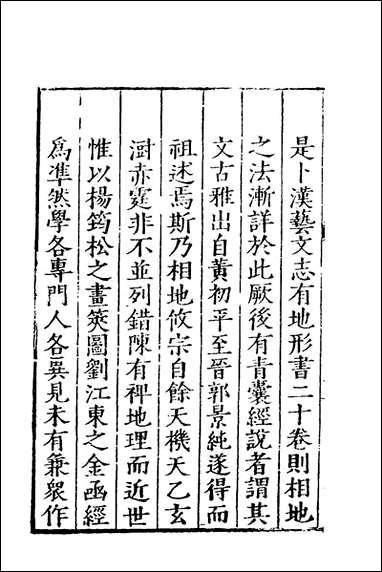 是卜漢藝文志有地形書二十卷則相地
之法漸詳於此厥後有青囊經說者謂其
文古雅出自黃初平至晉郭景純遂得而
祖述焉斯乃相地攸宗自餘天機天乙玄
澍赤霆非不並列錯陳有裨地理而近世
惟以楊筠松之畫筴圖劉江東之金函經
爲準然學各專門人各異見未有兼衆作